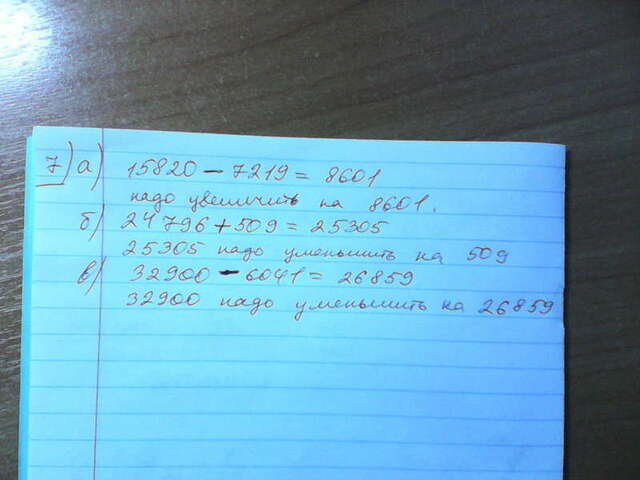 7) а) 15820 - 7219 = 8601
надо увеличить на 8601.
б) 24796 + 509 = 25305
25305 надо уменьшить на 509
в) 32900 - 6041 = 26859
32900 надо уменьшить на 26859